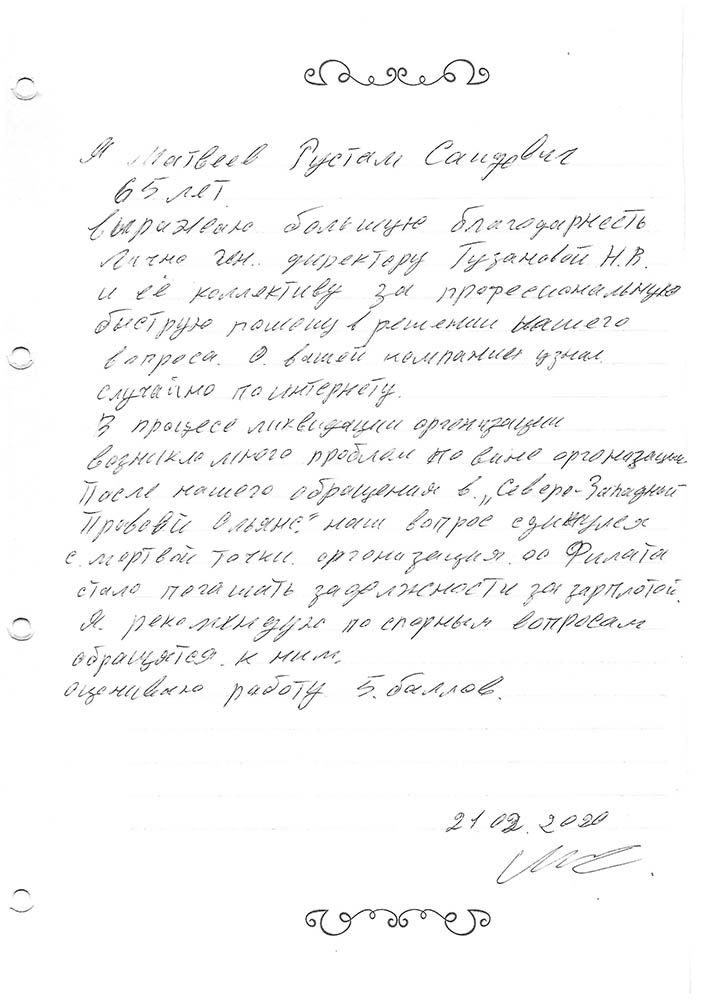 Я Матвеев Рустам Саидович
65 лет.
выражаю большую благодарность
лично ген. директору Тузановой Н.В.
и её коллективу за профессиональную
быструю помощь в решении нашего
вопроса. О вашей компании узнал
случайно по интернету.
В процесе ликвидации организации
возникло много проблем по вине организации
После нашего обращения в „Северо-Западный
Правовй Альянс" наш вопрос сдвинулся
с мертвой точки. организация оо Филата
стало погашать задолжности за зарплотой.
Я рекомендую по спорным вопросам
обращятся к ним.
оцениваю работу 5. баллов.
21 02. 2020